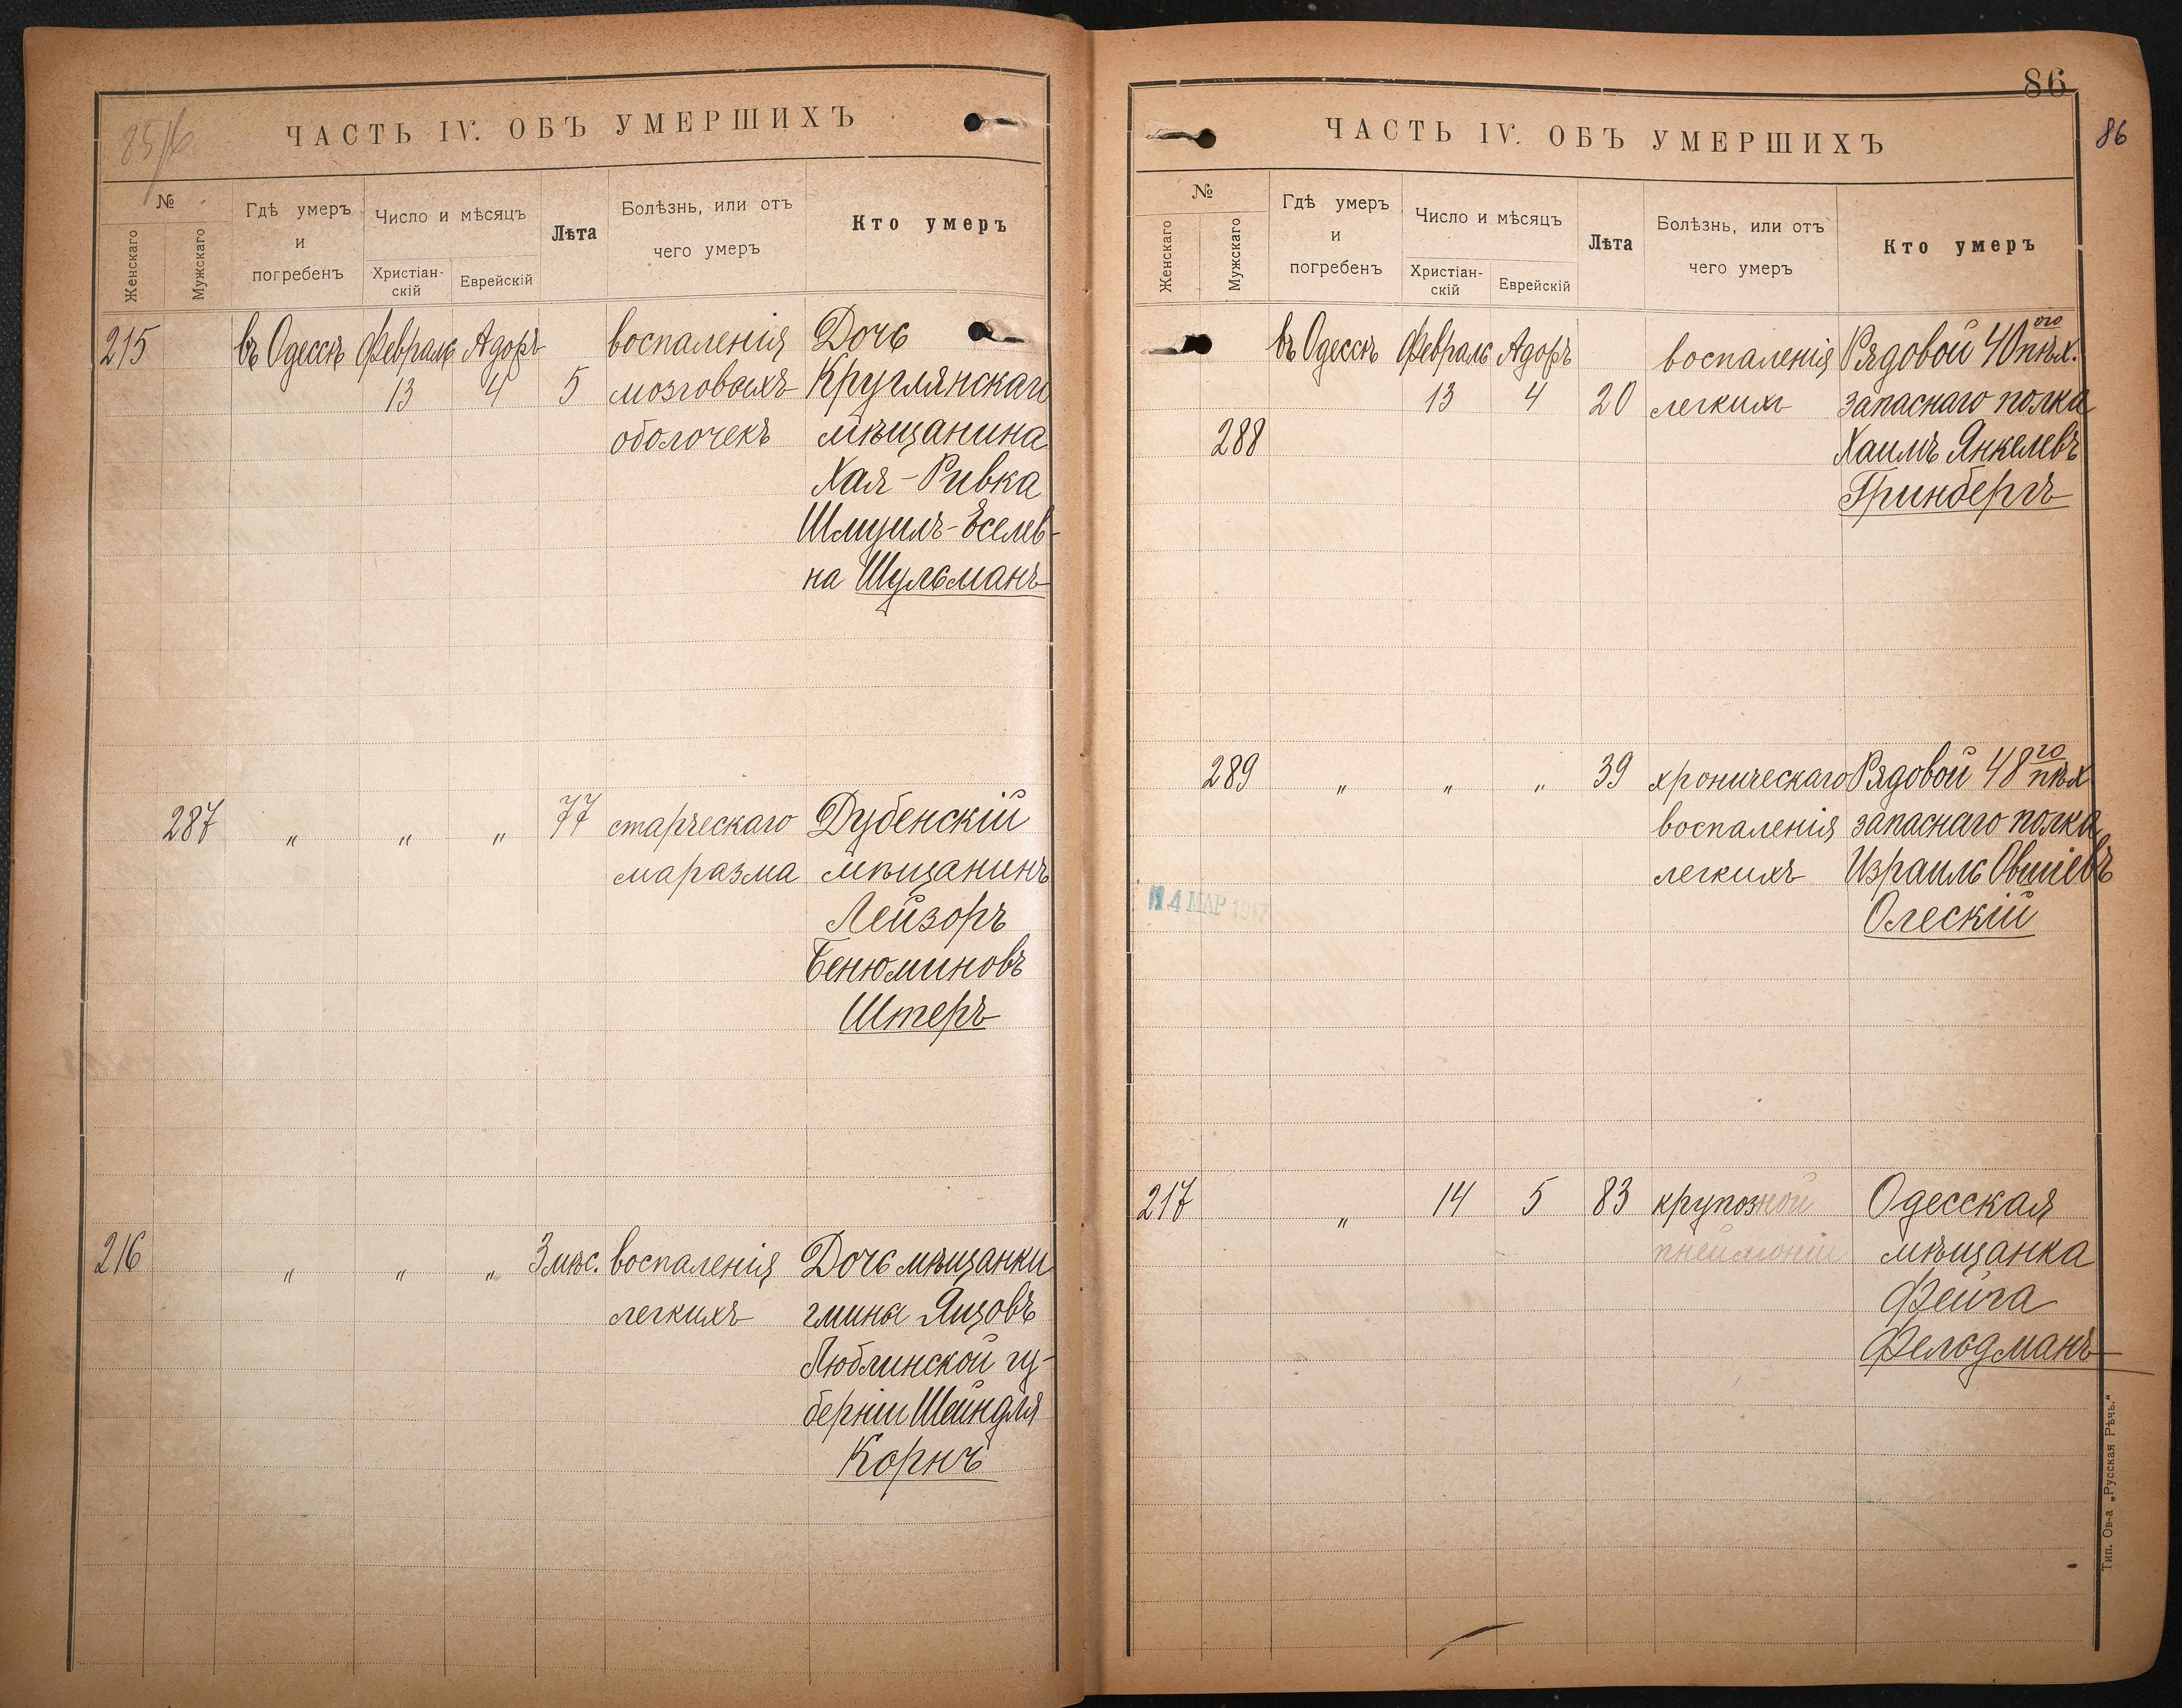 85/6
ЧАСТЬ IV. ОБЪ УМЕРШИХЪ
№
Женскаго
Мужскаго
Гдѣ умеръ
и
погребенъ
Число и мѣсяцъ
Христіан-
скій
Еврейскій
Лѣта
Болѣзнь, или отъ
чего умеръ
Кто умеръ
215 въ Одессѣ Февраль Адоръ воспаленія Дочь
13 4 5 мозговыхъ Круглянскаго
оболочекъ мѣщанина
Хая-Ривка
Шмуилъ-Еселев-
на Шульманъ
287 „ „ „ 77 старческаго Дубенскій
маразма мѣщанинъ
Лейзоръ
Бенюминовъ
Штеръ
216 „ „ „ 3 мѣс. воспаленія Дочь мѣщанки
легкихъ гмины Яцовъ
Люблинской гу-
берніи Шейндля
Корнъ
86
86
ЧАСТЬ IV. ОБЪ УМЕРШИХЪ
№
Женскаго
Мужскаго
Гдѣ умеръ
и
погребенъ
Число и мѣсяцъ
Христіан-
скій
Еврейскій
Лѣта
Болѣзнь, или отъ
чего умеръ
Кто умеръ
въ Одессѣ Февраль Адоръ воспаленія Рядовой 40ого пѣх.
13 4 20 легкихъ запаснаго полка
288 Хаимъ Янкелевъ
Гринбергъ
289 „ „ „ 39 хроническаго Рядовой 48го пѣх
воспаленія запаснаго полка
легкихъ Израиль Овшіевъ
14 МАР 1917 Олескій
217 „ 14 5 83 крупозной Одесская
пнеймоніи мѣщанка
Фейга
Фельдманъ
Тип. Ов-а „Русская Рѣчь.“